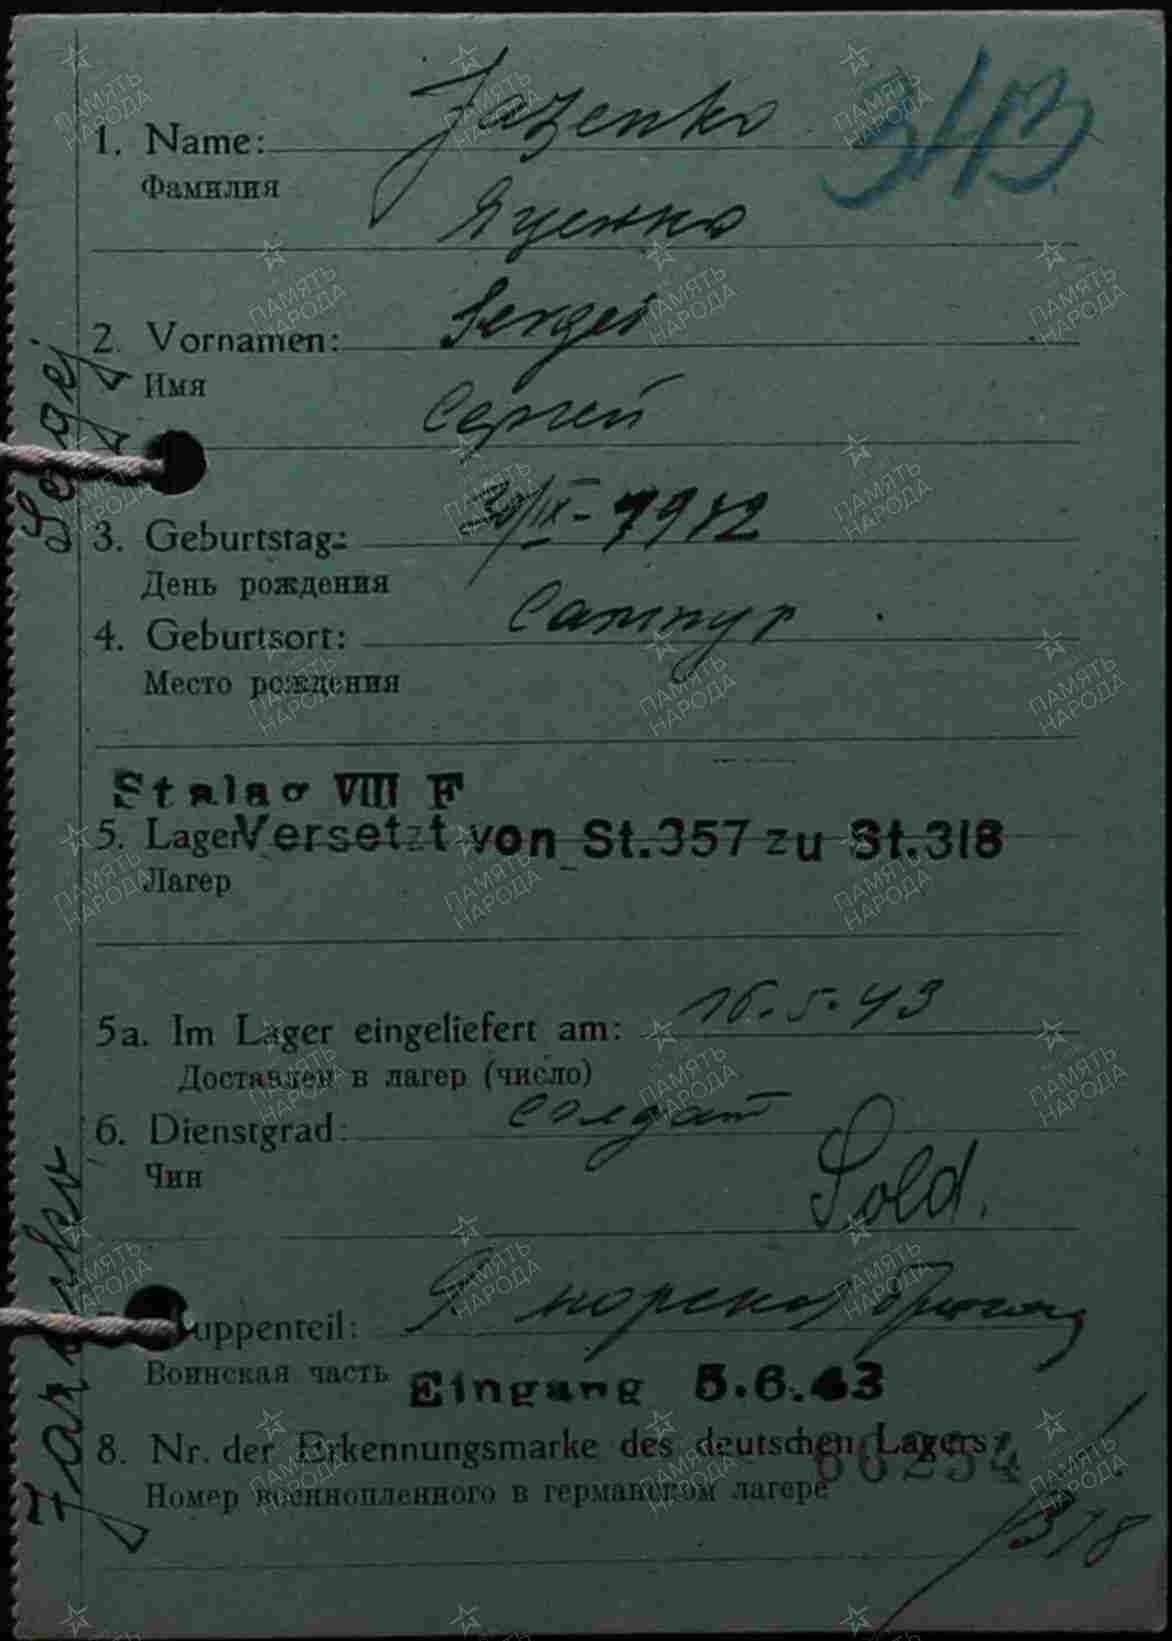 343
1. Name: Jazenko
Фамилия
Яценко
2. Vornamen: Sergei
Имя
Сергей
3. Geburtstag: /IX-1912
День рождения
4. Geburtsort:
Место рождения
Stalag VIII F
5. Lager Versetzt von St.357 zu St.318
Лагер
5a. Im Lager eingeliefert am: 16.5.43
Доставлен в лагер (число)
6. Dienstgrad: солдат
Чин
Sold.
uppenteil: морская бригада
Воинская часть
Eingang 5.6.43
8. Nr. der Erkennungsmarke des deutschen Lagers: 66254
Номер военнопленного в германском лагере
/318
Jazenko Sergej
ПАМЯТЬ НАРОДА